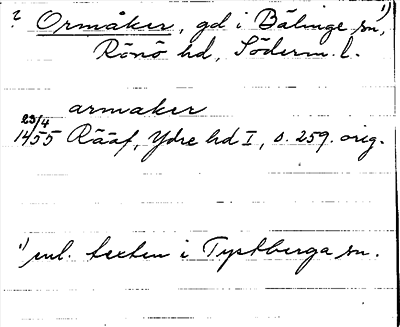 ? Ormåker, gd i Bälinge sn,¹⁾
Rönö hd, Söderm. l.
armaker
23/4
1455 Rääf, Ydre hd I, s. 259. orig.
¹⁾ enl. texten i Tystberga sn.